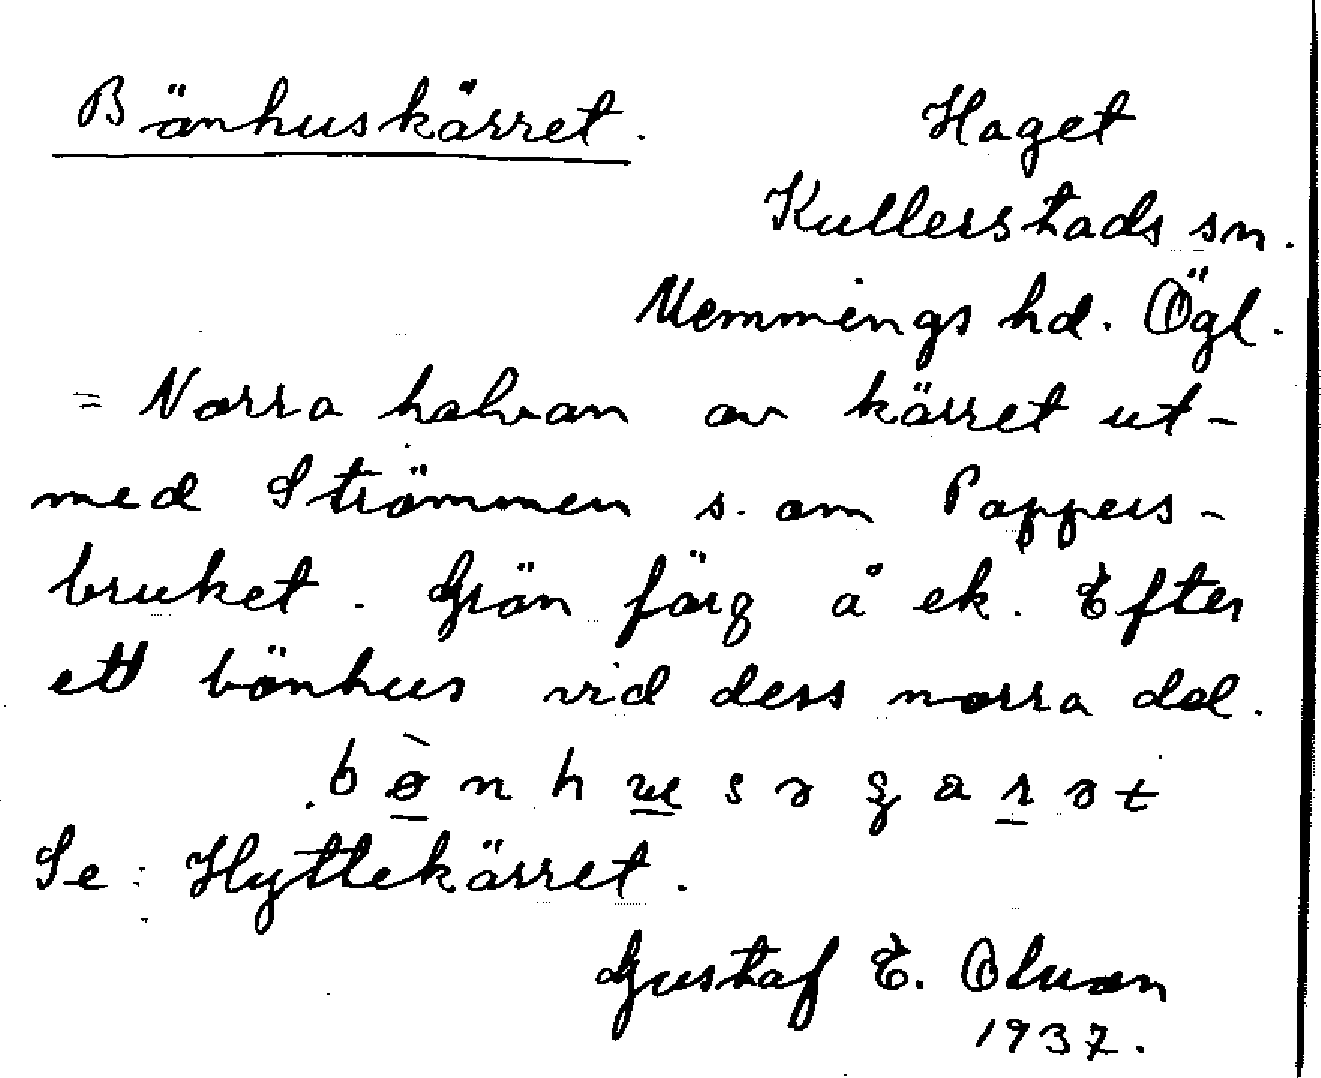 Bönhuskärret. Haget
Kullerstads sn.
Memmings hd. Ögl.
= Norra halvan av kärret ut-
med Strömmen s. om Pappers-
bruket. Grön färg å ek. Efter
ett bönhus vid dess norra del.
Se: Hyttekärret.
Gustaf E. Olsson
1937.